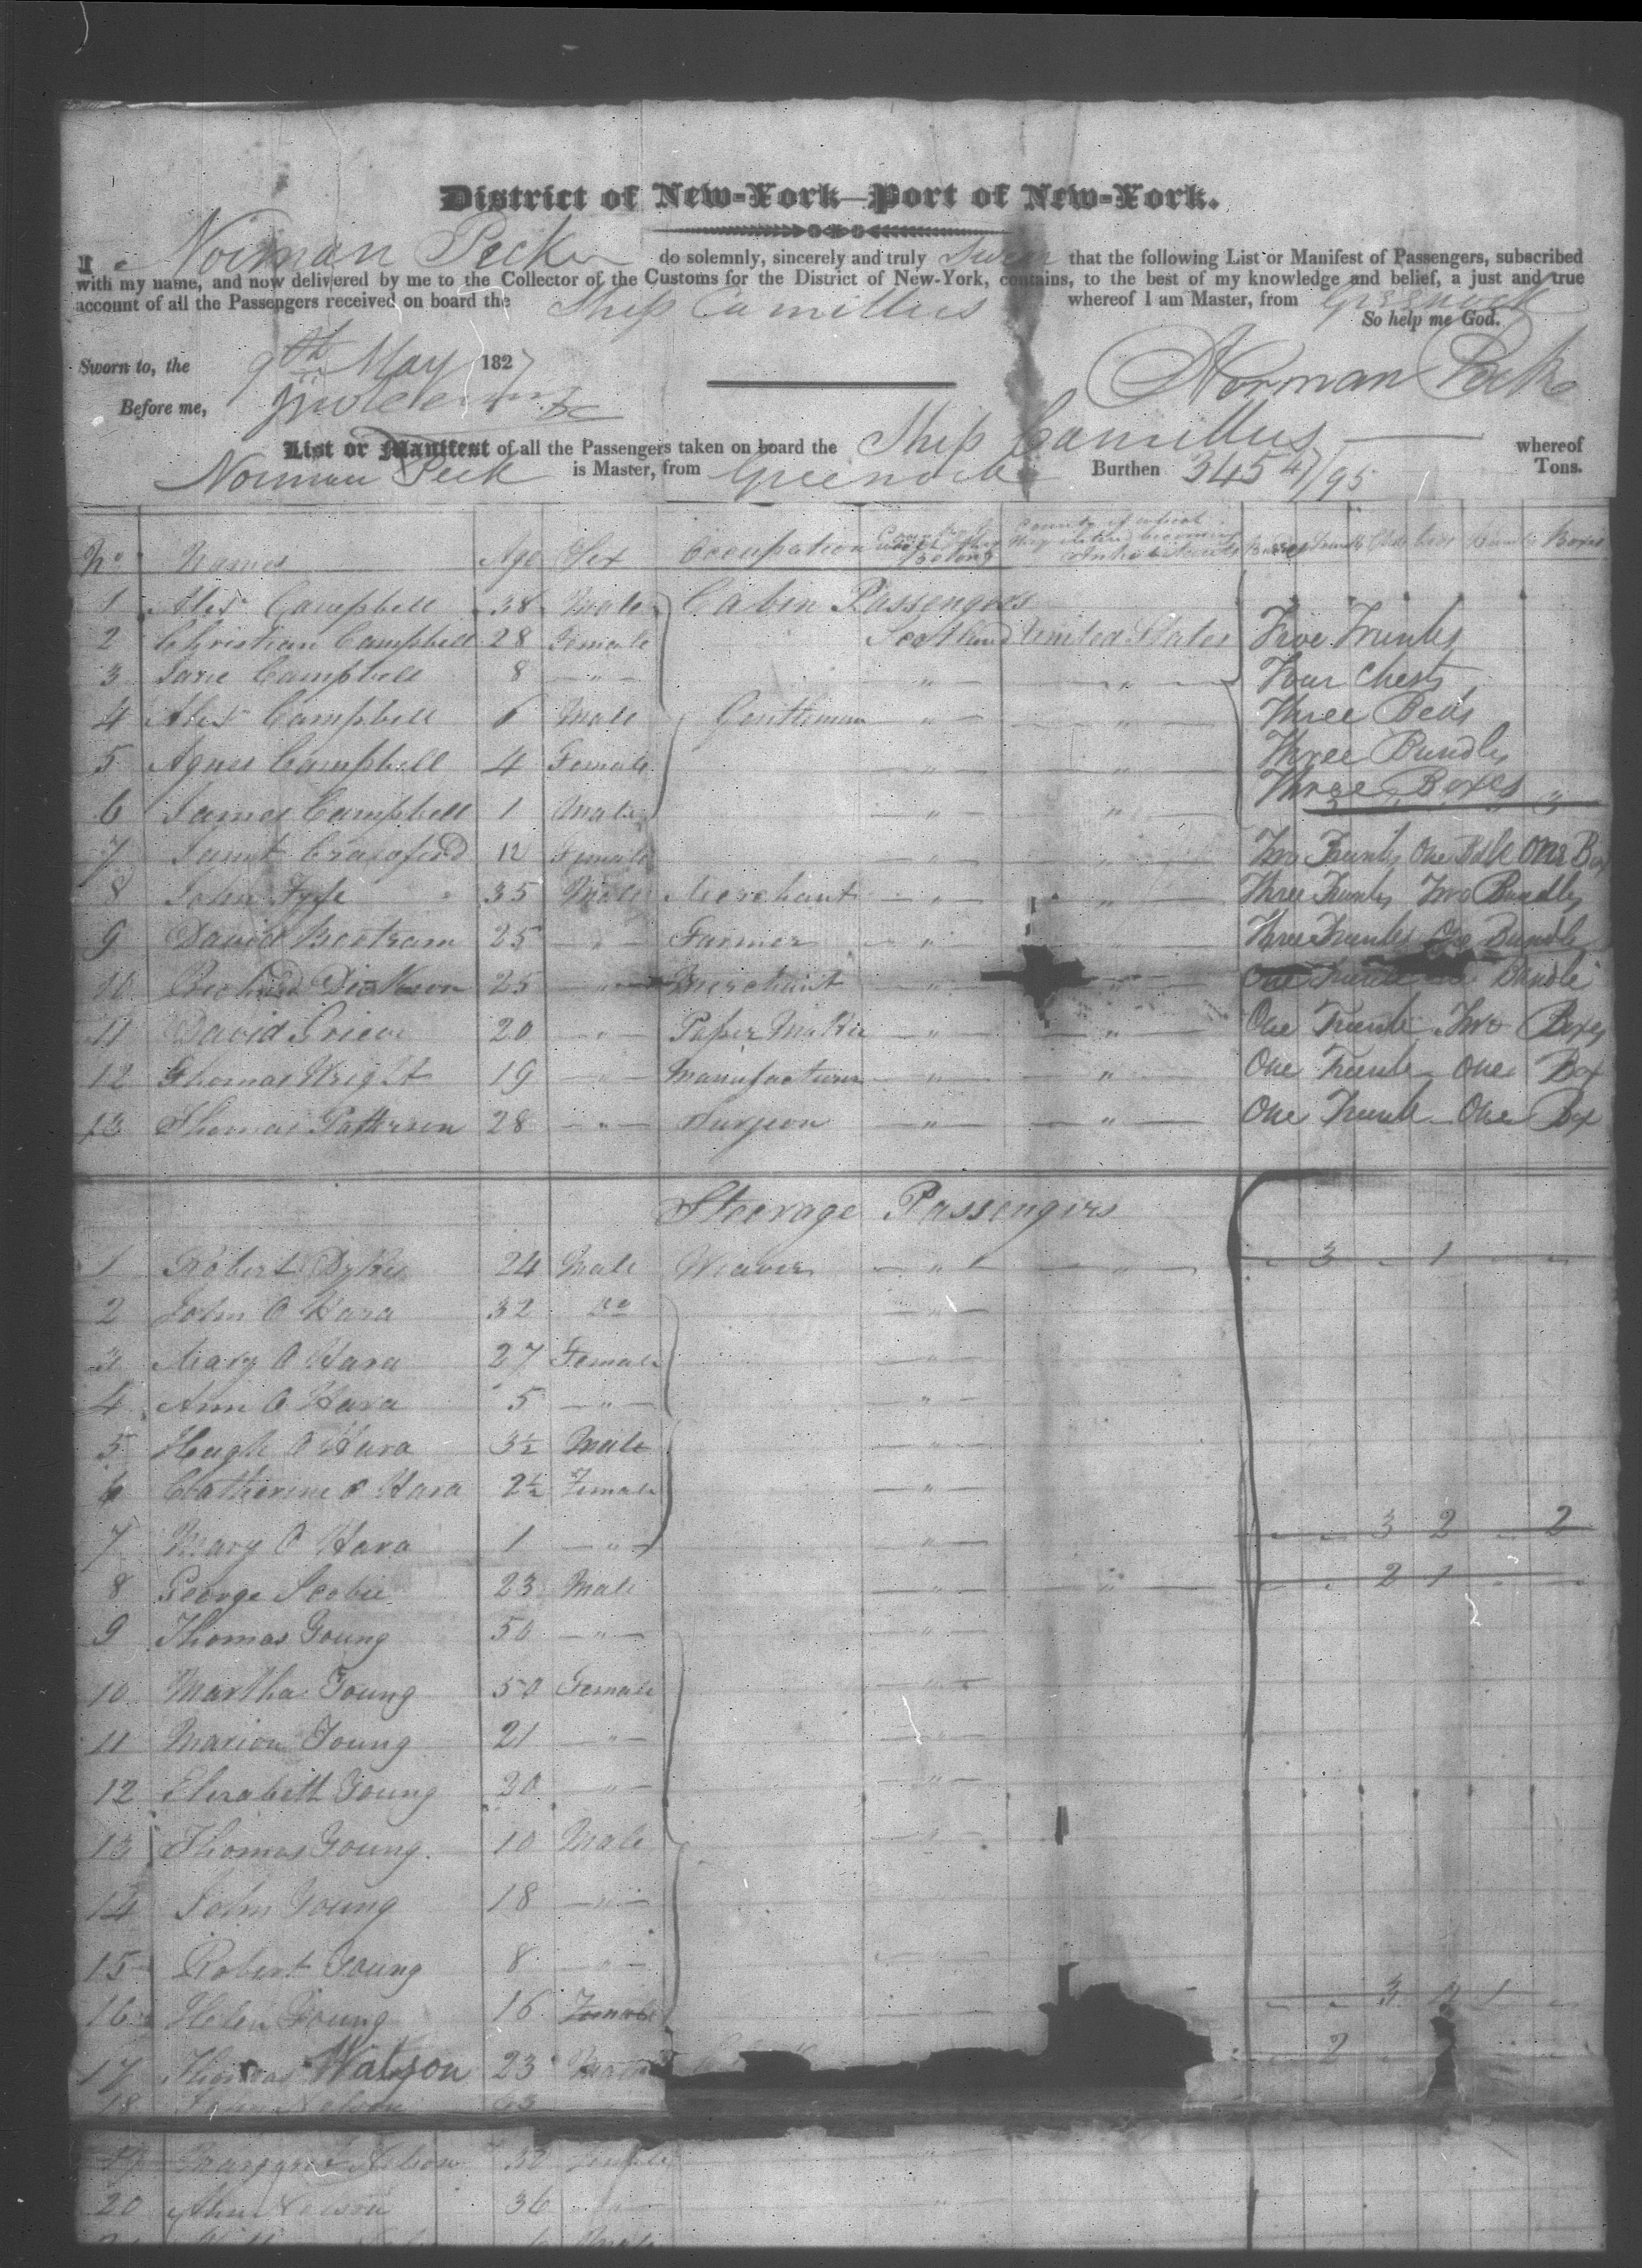 District of New-York—Port of New-York.
I Norman Peck do solemnly, sincerely and truly Swear that the following List or Manifest of Passengers, subscribed
with my name, and now delivered by me to the Collector of the Customs for the District of New-York, contains, to the best of my knowledge and belief, a just and true
account of all the Passengers received on board the Ship Camillus whereof I am Master, from Greenock
So help me God.
Sworn to, the 9th May 1827
Norman Peck
Before me,
List or Manifest of all the Passengers taken on board the Ship Camillus whereof
Norman Peck is Master, from Greenock Burthen 345 47/95 Tons.
No Names Age Sex Occupation Country to which they belong Country of which they intend becoming Inhabitants Boxes
1 Alexr Campbell 38 Male Cabin Passengers
2 Christian Campbell 28 Female Scotland United States Five Trunks
3 Jane Campbell 8 " " " Four Chests
4 Alexr Campbell 6 Male Gentleman " " Three Beds
5 Agnes Campbell 4 Female " " Three Bundles
6 James Campbell 1 Male " " Three Boxes
7 Janet Crawford 12 Female " " Two Trunks One Bdle One Box
8 John Fyfe 35 Male Merchant " " Three Trunks Two Bundles
9 David Bertram 25 " Farmer " " Three Trunks One Bundle
10 Richard Dickson 25 " Merchant " " One Trunk Bundle
11 David Grieve 20 " Paper Maker " " One Trunk Two Boxes
12 Thomas Wright 19 " Manufacturer " " One Trunk One Box
13 Thomas Patterson 28 " Surgeon " " One Trunk One Box
Steerage Passengers
1 Robert Dykes 24 Male Weaver " " 3 1
2 John O Hara 32 Do "
3 Mary O Hara 27 Female "
4 Ann O Hara 5 " "
5 Hugh O Hara 3½ Male "
6 Catherine O Hara 2½ Female "
7 Mary O Hara 1 " " 3 2 2
8 George Scobie 23 Male " " 2 1
9 Thomas Young 50 " "
10 Martha Young 50 Female "
11 Marion Young 21 " "
12 Elizabeth Young 20 " "
13 Thomas Young 10 Male "
14 John Young 18 "
15 Robert Young 8 "
16 Helen Young 16 Female 3 4 1
17 Thomas Watson 23 Male 2
18 Nelson 63
19 Margaret Nelson 30 Female
20 Nelson 36 "
Male